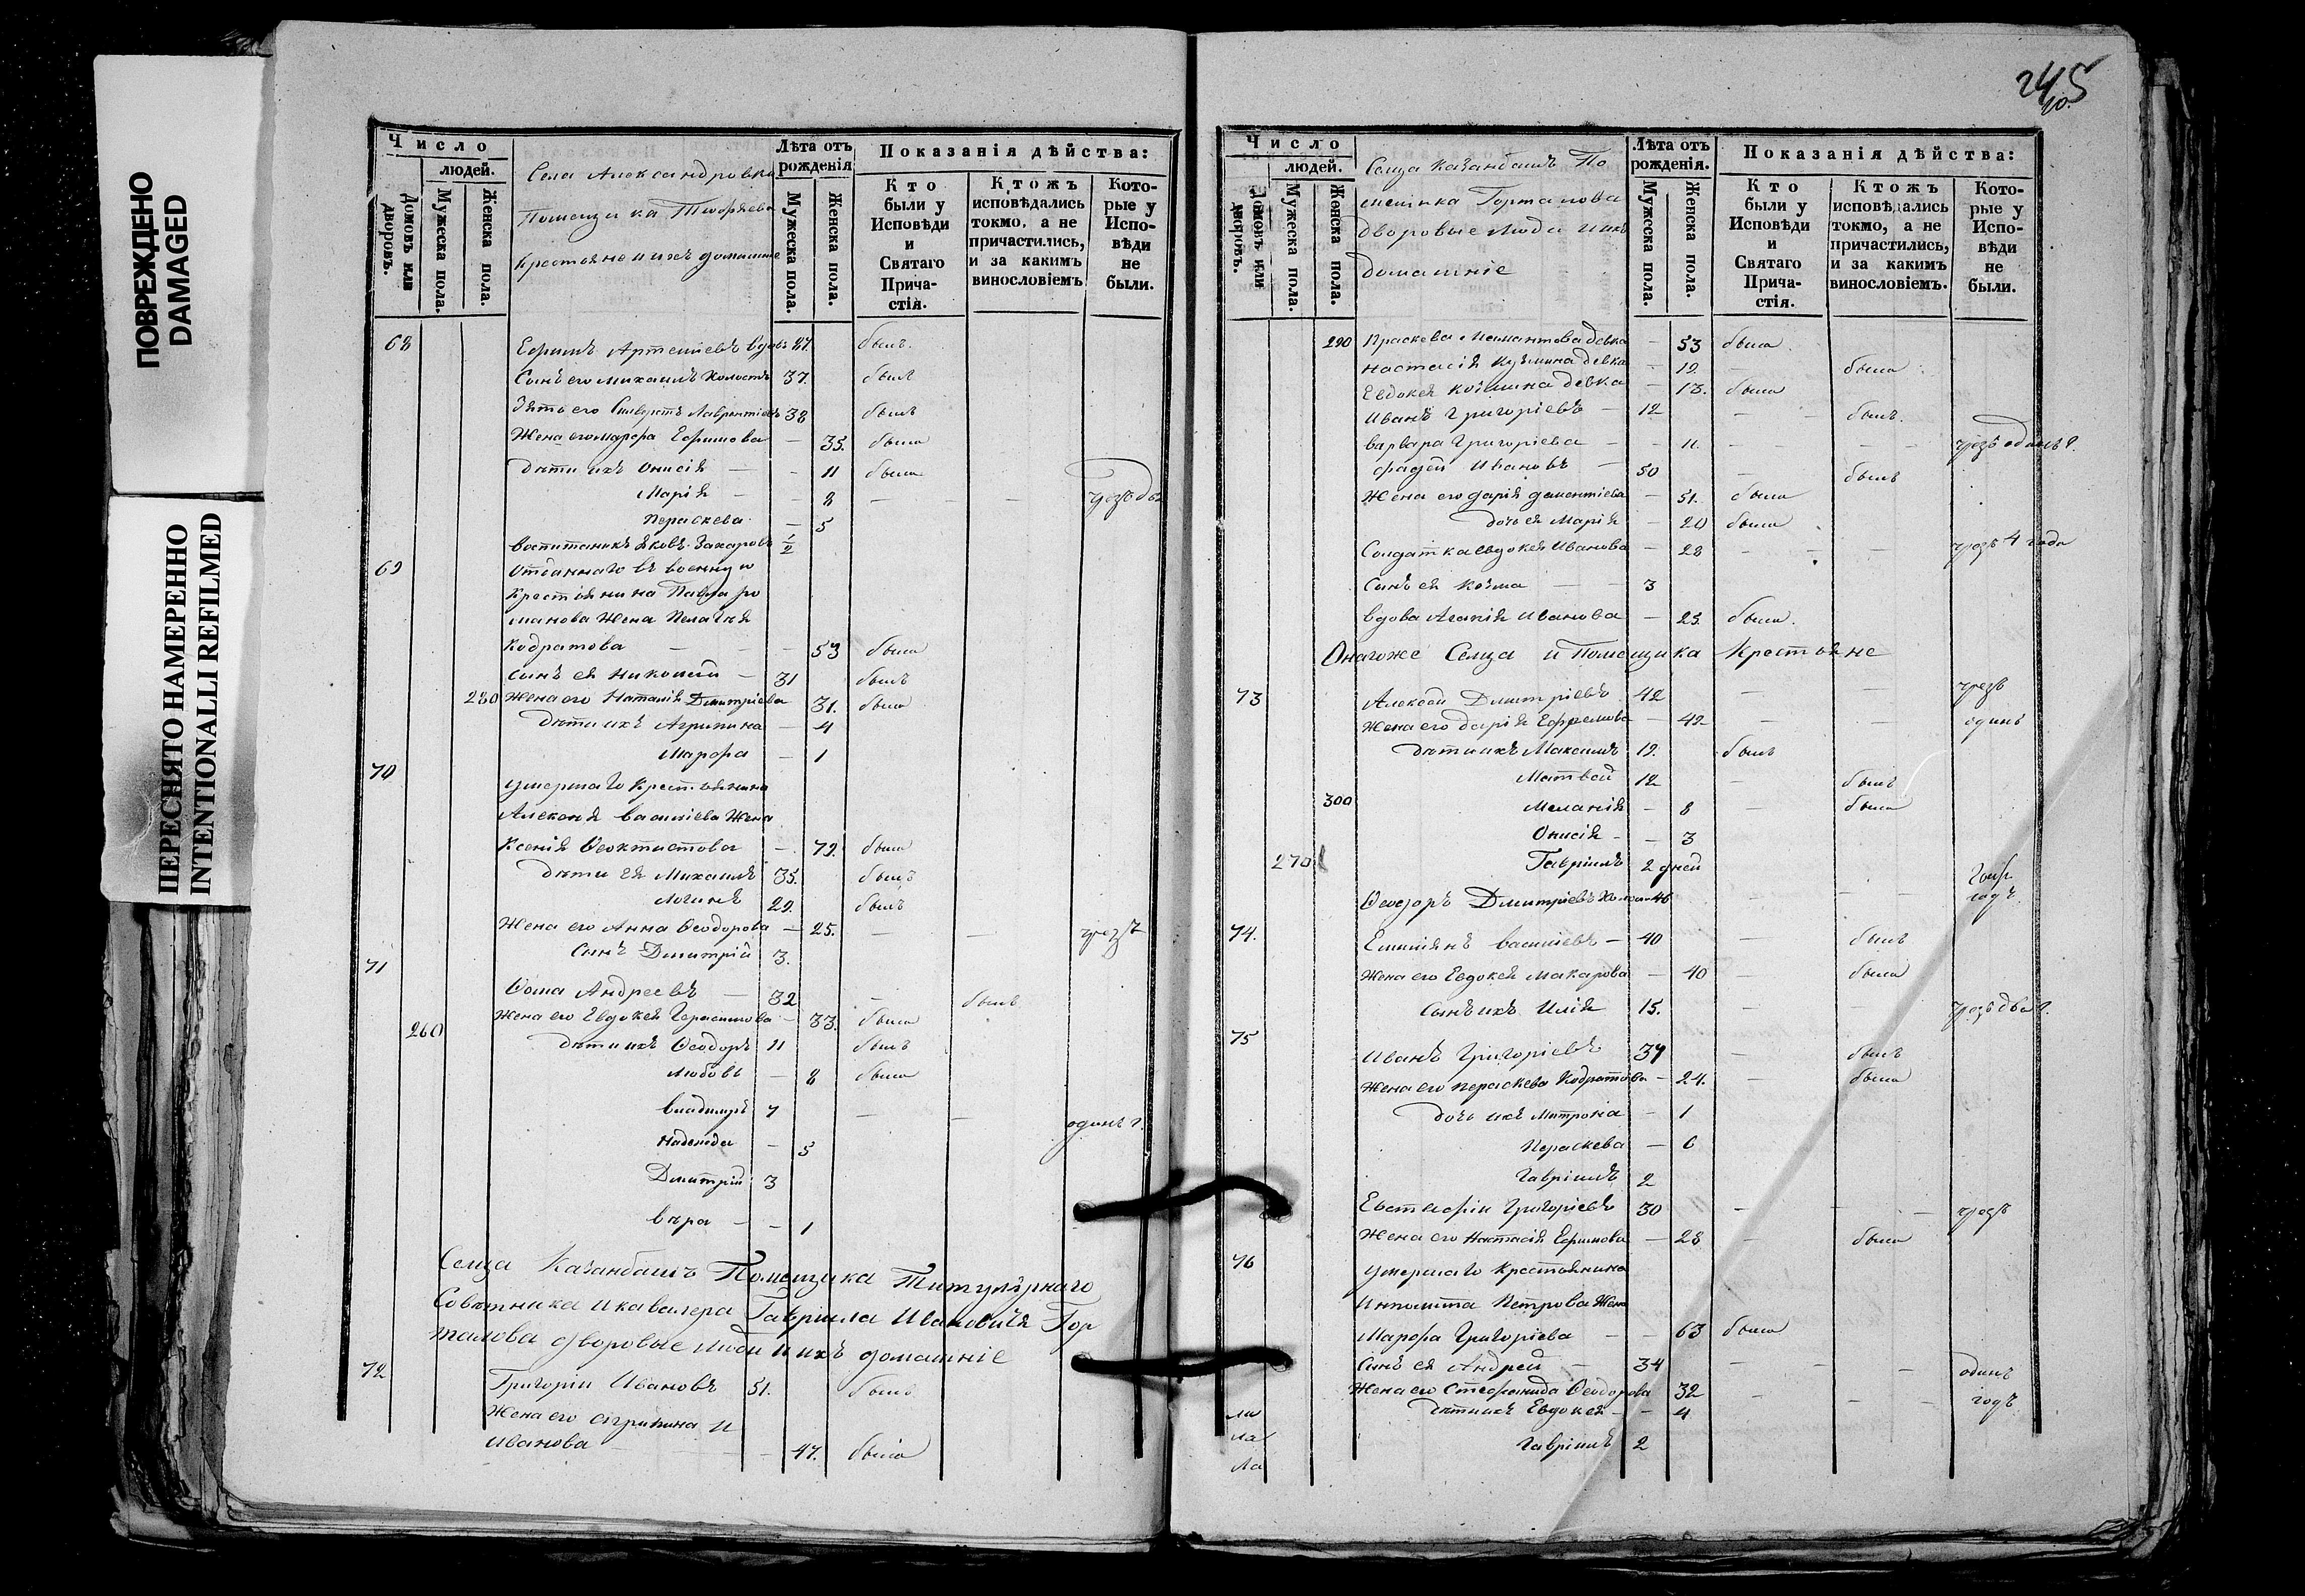 ПОВРЕЖДЕНО
DAMAGED
ПЕРЕСНЯТО НАМЕРЕННО
INTENTIONALLI REFILMED
Число
людей.
Домовъ или дворовъ.
Мужеска пола.
Женска пола.
Села Александровки
Помещика
Крестьяне и ихъ домашние
Лѣта отъ рожденія
Мужеска пола.
Женска пола.
Показанія дѣйства:
Кто были у Исповѣди и Святаго Причастія.
Ктожъ исповѣдались токмо, а не причастились, и за какимъ винословіемъ.
Которые у Исповѣди не были.
68
Ефимъ Артемиевъ вдовъ былъ.
Сынъ его Михаилъ холостъ 37. былъ
Зять его Лаврентіевъ 38 былъ
Жена его Марфа Ефимова — 35. была
дѣти ихъ Онисія — - 11 была
Марія — - 8 — —
Пераскева — 5
воспитаникъ Яковъ Захаровъ 1/2
69
Отданнаго въ военную
Крестьянина Павла Ро
манова Жена Пелагея
Кодратова — - - 53 была
сынъ ея Николай — 31 былъ
280 Жена его Наталія Дмитріева 31. была
дѣти ихъ Агрипина — 4
Марфа — 1
70
умершаго Крестьянина
Алексея Василіева Жена
Ксенія Ѳеоктистова — 72. была
дѣти ея Михаилъ 35. былъ
Логинъ 29. былъ
Жена его Анна Ѳеодорова — 25. — — чрезъ
Сынъ Дмитрій 3.
71
Ѳома Андреевъ — 32 — былъ
Жена его Евдокея Герасимова - 33. была
260 дѣти ихъ Ѳеодоръ 11 былъ
Любовь — 8 была
Владимиръ 7 — — одинъ г.
Надежда — 5
Дмитрій 3
Вѣра — - 1
Сельца Казанбашъ Помещика Титулярнаго
Совѣтника и кавалера Гавріила Ивановича Гор
талова дворовые люди и ихъ домашніе
72
Григорій Ивановъ 51. былъ
Жена его Агрипина И
Иванова — 47. была
245
Число
людей.
Домовъ или дворовъ.
Мужеска пола.
Женска пола.
Сельца Казанбашъ По
мещика Горталова
дворовые люди и ихъ
домашніе
Лѣта отъ рожденія.
Мужеска пола.
Женска пола.
Показанія дѣйства:
Кто были у Исповѣди и Святаго Причастія.
Ктожъ исповѣдались токмо, а не причастились, и за какимъ винословіемъ.
Которые у Исповѣди не были.
290 Праскева Мамантова девка — 53 была.
Настасія Кузмина девка - 19. — была
Евдокея Козмина девка — 13. была
Иванъ Григоріевъ — 12 — - былъ.
Варвара Григоріева — - 11. — - - чрезъ одинъ г.
Фадей Ивановъ — 50 — былъ
Жена его Дарія Дементіева — 51. была
дочь ея Марія — 20 была
Солдатка Евдокея Иванова — 28 - - — чрезъ 4 года
Сынъ ея Козма — — 3
вдова Агапія Иванова — 23. была.
Онагоже Сельца и Помещика Крестьяне
73
Алексей Дмитріевъ 42 — — чрезъ
Жена его Дарія Ефремова — 42 — — одинъ
дѣти ихъ Максимъ 19. былъ
Матвей 12 — былъ
300 Меланія — 8 — была
Онисія - - 3
270 Гавріилъ 2 дней
Ѳеодоръ Дмитріевъ 46 — — годъ
74.
Емилиянъ Василіевъ — 40 — былъ
Жена его Евдокея Макарова — 40 — была
Сынъ ихъ Илія 15. — — чрезъ два г.
75
Иванъ Григоріевъ 37 — былъ
Жена его Пераскева Кодратова — 24. — была
дочь ихъ Матрона — 1
Пераскева — 6
Гавріилъ 2
Евстафіи Григоріевъ 30 — - — чрезъ
Жена его Настасія Ефимова — 28 — была
76
умершаго Крестьянина
Иполита Петрова Жена
Марфа Григоріева — - 63 была
Сынъ ея Андрей — 34 — - — одинъ
Жена его Стефанида Ѳеодорова 32 — — - годъ
дѣти ихъ Евдокея - - 4
Гавріилъ 2